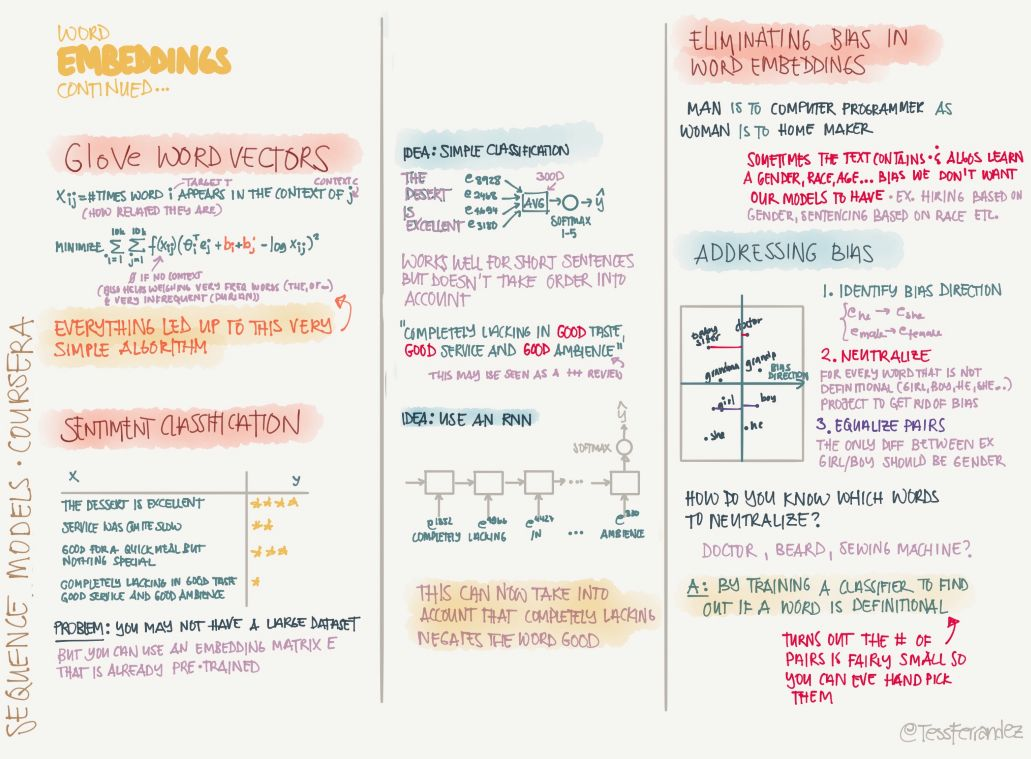 WORD
EMBEDDINGS
CONTINUED...
GloVe WORD VECTORS
TARGET T
CONTEXT C
Xij = # TIMES WORD i APPEARS IN THE CONTEXT OF j
(HOW RELATED THEY ARE)
MINIMIZE Σ i=1 10k Σ j=1 10k f(Xij)(θiᵀej + bi + bj' - log Xij)²
Ø IF NO CONTEXT
(ALSO HELPS WEIGHING VERY FREQ WORDS (THE, OF...)
& VERY INFREQUENT (DURIAN))
EVERYTHING LED UP TO THIS VERY
SIMPLE ALGORITHM
SENTIMENT CLASSIFICATION
X y
THE DESSERT IS EXCELLENT ★★★★
SERVICE WAS QUITE SLOW ★★
GOOD FOR A QUICK MEAL BUT
NOTHING SPECIAL ★★★
COMPLETELY LACKING IN GOOD TASTE
GOOD SERVICE AND GOOD AMBIENCE ★
PROBLEM: YOU MAY NOT HAVE A LARGE DATASET
BUT YOU CAN USE AN EMBEDDING MATRIX E
THAT IS ALREADY PRE-TRAINED
SEQUENCE MODELS · COURSERA
IDEA: SIMPLE CLASSIFICATION
THE e8928
DESERT e2468
IS e4694
EXCELLENT e3180
300D
AVG
ŷ
SOFTMAX
1-5
WORKS WELL FOR SHORT SENTENCES
BUT DOESN'T TAKE ORDER INTO
ACCOUNT
"COMPLETELY LACKING IN GOOD TASTE,
GOOD SERVICE AND GOOD AMBIENCE"
THIS MAY BE SEEN AS A +++ REVIEW
IDEA: USE AN RNN
ŷ
SOFTMAX
...
e1852 e4966 e4427 e330
COMPLETELY LACKING IN ... AMBIENCE
THIS CAN NOW TAKE INTO
ACCOUNT THAT COMPLETELY LACKING
NEGATES THE WORD GOOD
ELIMINATING BIAS IN
WORD EMBEDDINGS
MAN IS TO COMPUTER PROGRAMMER AS
WOMAN IS TO HOME MAKER
SOMETIMES THE TEXT CONTAINS · & ALGOS LEARN
A GENDER, RACE, AGE... BIAS WE DON'T WANT
OUR MODELS TO HAVE · EX. HIRING BASED ON
GENDER, SENTENCING BASED ON RACE ETC.
ADDRESSING BIAS
BABY
SITTER
doctor
grandma
grandp
BIAS
DIRECTION
girl
boy
she
he
1. IDENTIFY BIAS DIRECTION
ehe → eshe
emale → efemale
2. NEUTRALIZE
FOR EVERY WORD THAT IS NOT
DEFINITIONAL (GIRL, BOY, HE, SHE...)
PROJECT TO GET RID OF BIAS
3. EQUALIZE PAIRS
THE ONLY DIFF BETWEEN EX
GIRL/BOY SHOULD BE GENDER
HOW DO YOU KNOW WHICH WORDS
TO NEUTRALIZE?
DOCTOR, BEARD, SEWING MACHINE?
A: BY TRAINING A CLASSIFIER TO FIND
OUT IF A WORD IS DEFINITIONAL
TURNS OUT THE # OF
PAIRS IS FAIRLY SMALL SO
YOU CAN EVE HAND PICK
THEM
@TessFerrandez